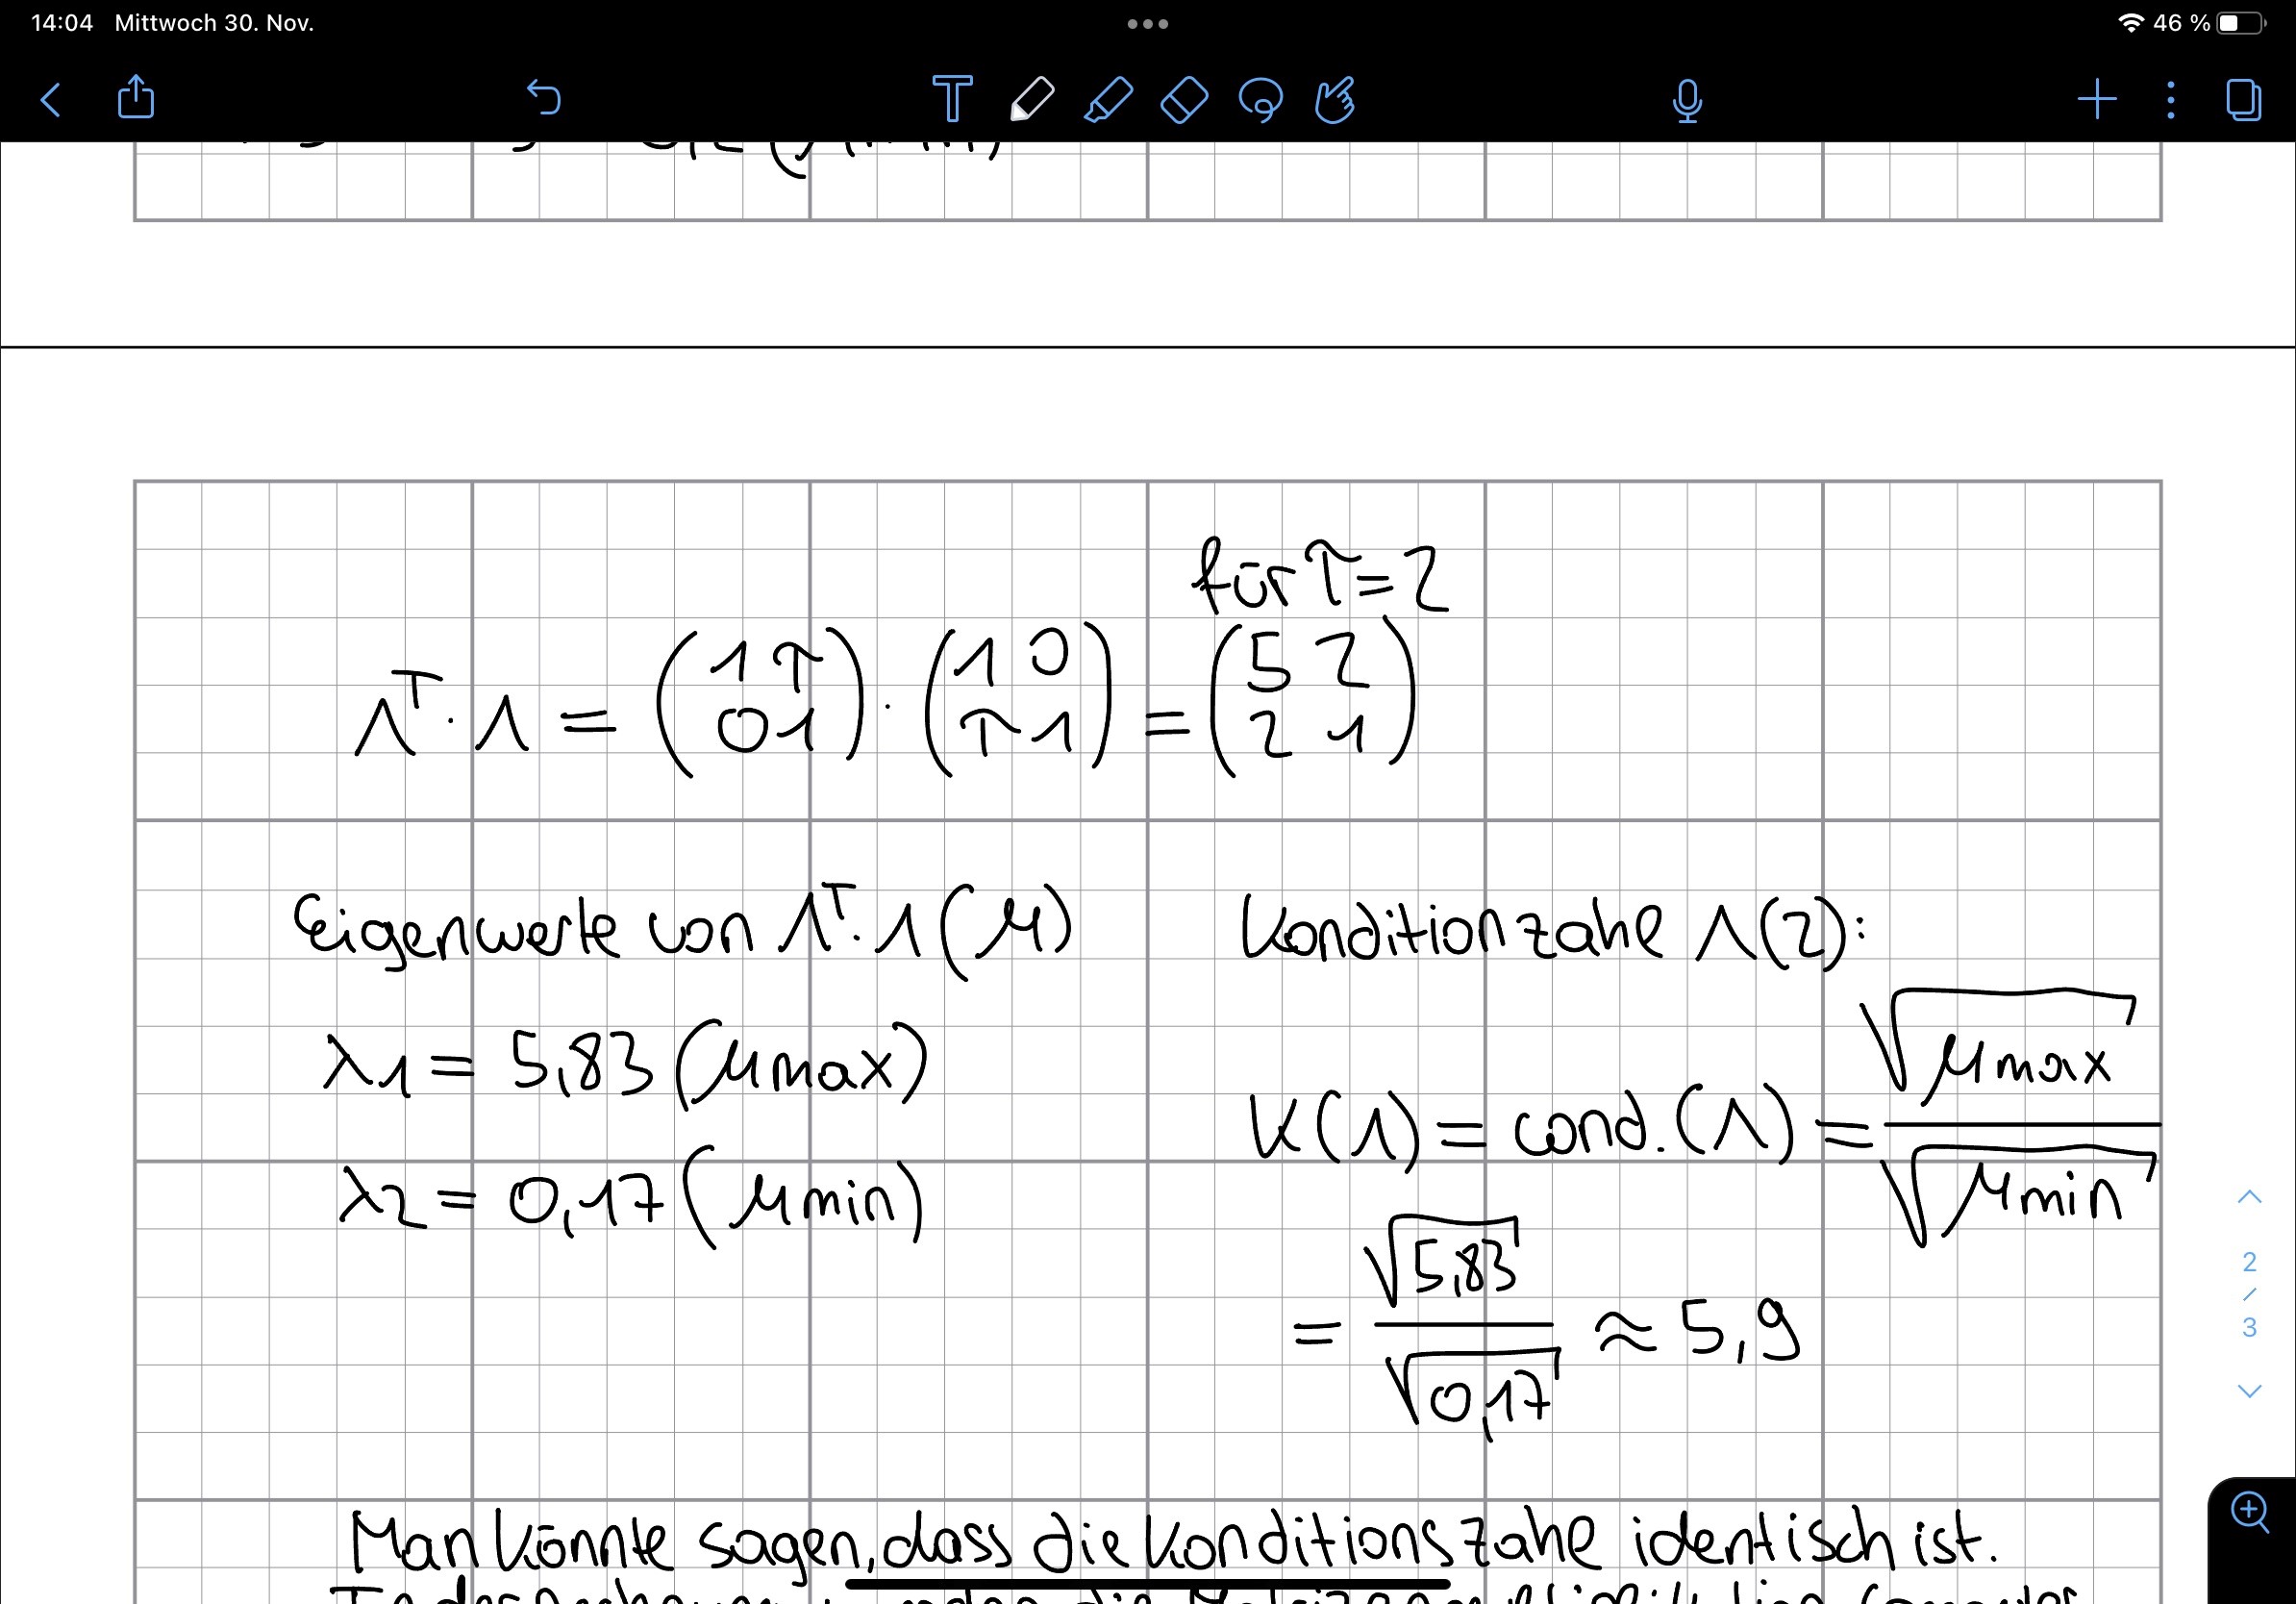 14:04 Mittwoch 30. Nov.
46 %
für τ=2
Λᵀ·Λ = (1 τ / 0 1) · (1 0 / τ 1) = (5 2 / 2 1)
Eigenwerte von Λᵀ·Λ (μ)
λ1 = 5,83 (μmax)
λ2 = 0,17 (μmin)
Konditionzahle Λ(2):
K(Λ) = cond.(Λ) = √μmax / √μmin
= √5,83 / √0,17 ≈ 5,9
2 / 3
Man könnte sagen, dass die Konditionszahe identisch ist.